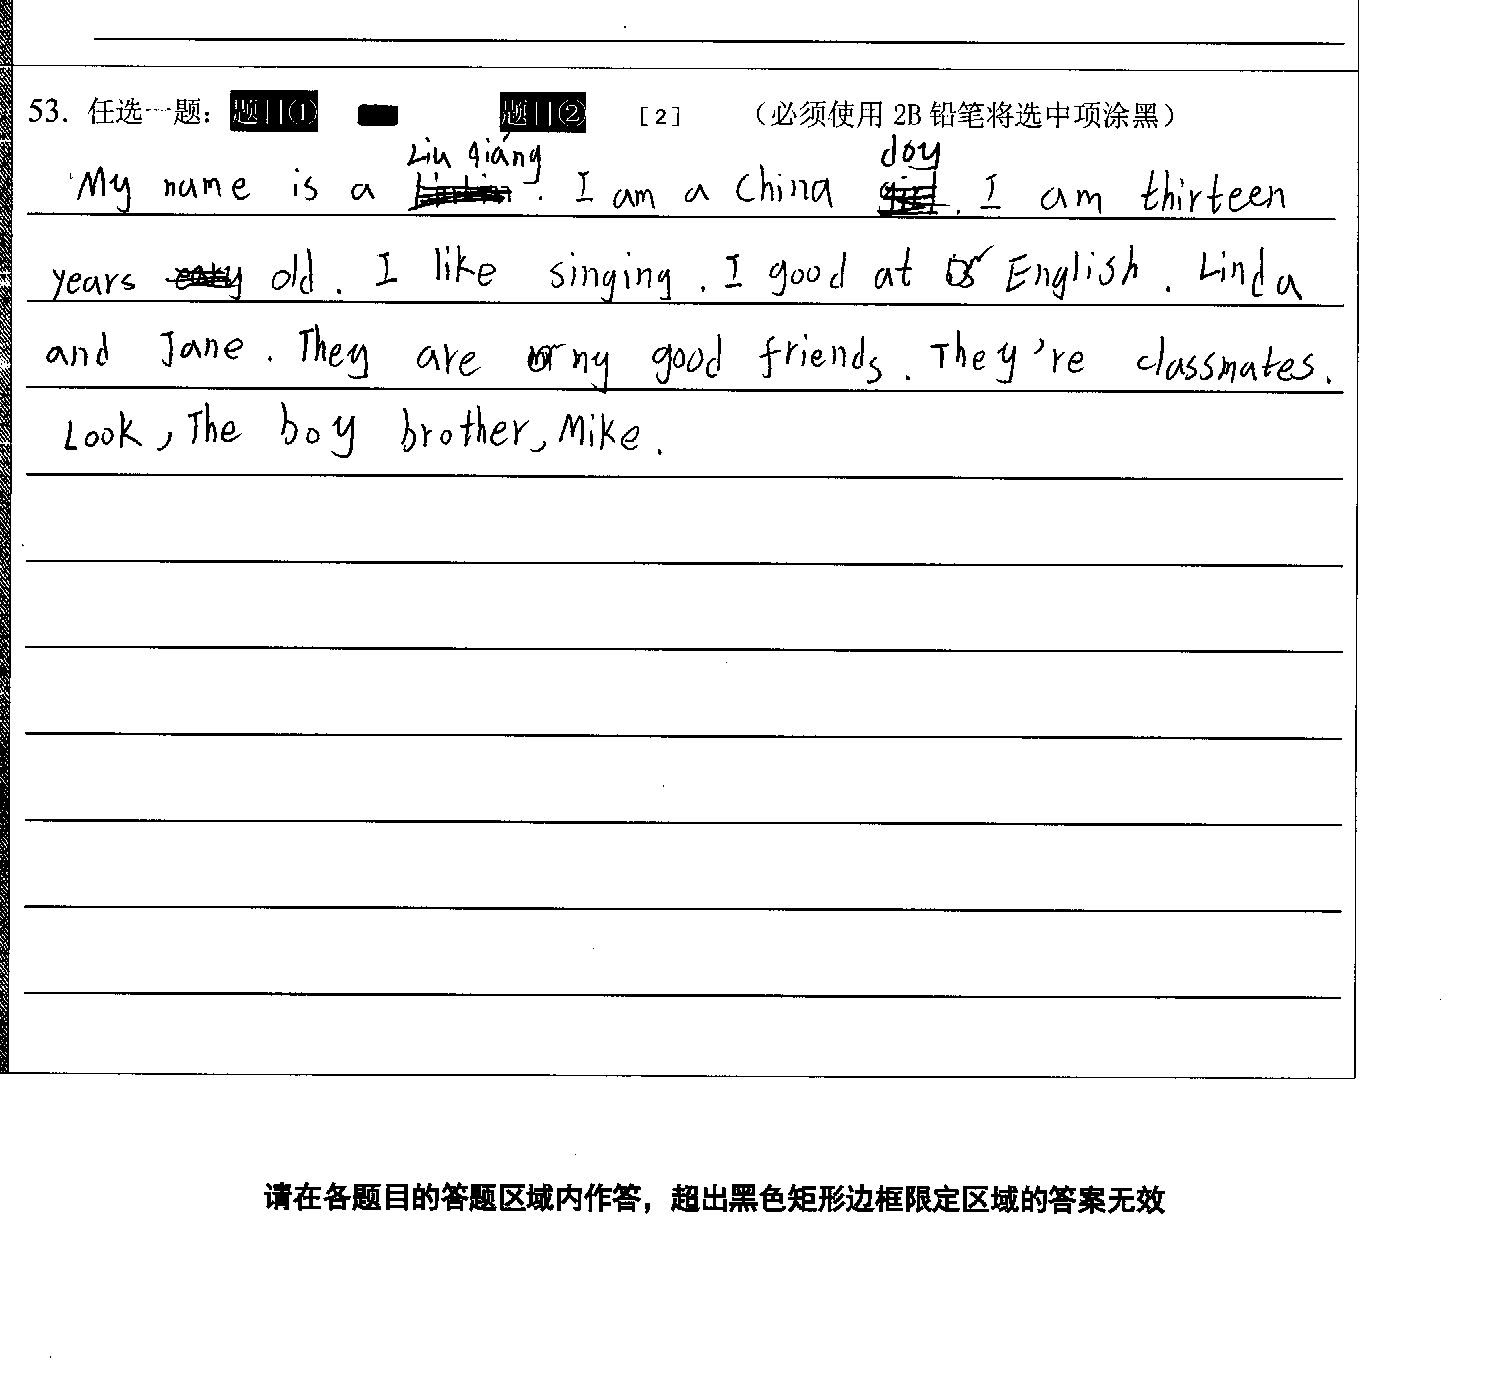 53. 任选一题：题目① 题目② [2] （必须使用 2B 铅笔将选中项涂黑）
Liu qiáng doy
My name is a . I am a China . I am thirteen
years old . I like singing . I good at English . Linda
and Jane . They are my good friends . They're classmates .
Look , The boy brother , Mike .
请在各题目的答题区域内作答，超出黑色矩形边框限定区域的答案无效